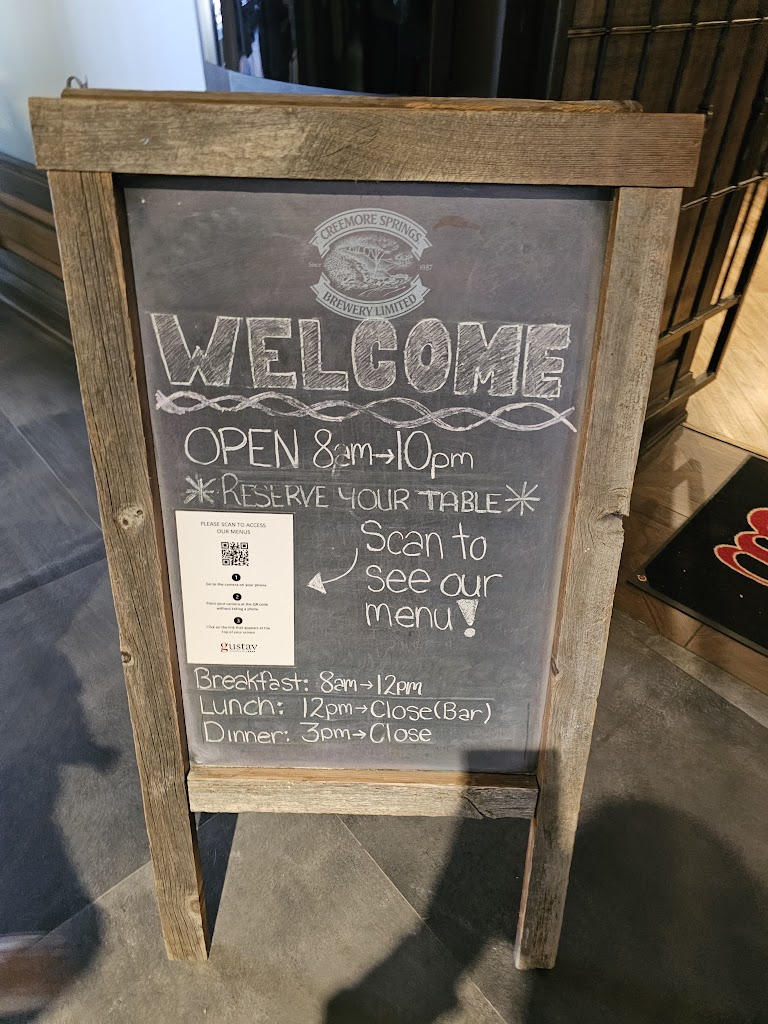 CREEMORE SPRINGS
Since 1987
BREWERY LIMITED
WELCOME
OPEN 8am→10pm
RESERVE YOUR TABLE
PLEASE SCAN TO ACCESS
OUR MENUS
1
Go to the camera on your phone
2
Point your camera at the QR code
without taking a photo
3
Click on the link that appears at the
top of your screen
gustav
Scan to
see our
menu!
Breakfast: 8am→12pm
Lunch: 12pm→Close(Bar)
Dinner: 3pm→Close